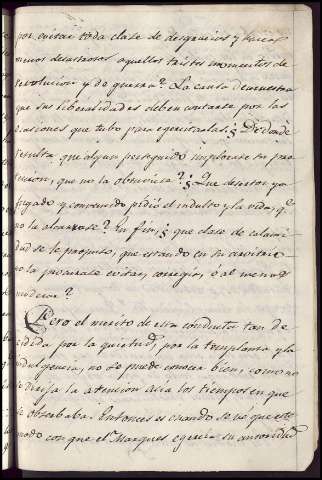 por evitar toda clase de desgracias y hacer
menos desastrosos aquellos tristes momentos de
revolucion y de guerra? La causa demuestra
que sus liberalidades deben contarse por las
ocasiones que tubo para egercitarlas. ¿De donde
resulta que algun perseguido implorase su pro
teccion, que no la obtuviera? ¿Que desertor ya
juzgado y convencido pidió el indulto y la vida, qe
no la alcanzase? En fin, ¿que clase de calami
dad se le propuso, que estando en su arvitrio
no la procurase evitar, corregir, ó al menos
moderar?
Pero el merito de esta conducta tan de
cidida por la quietud, por la templanza y la
indulgencia, no se puede conocer bien, como no
se dirija la atencion acia los tiempos en que
se observaba. Entonces es cuando se vé que este
modo con que el Sr Marques egercia su autoridad